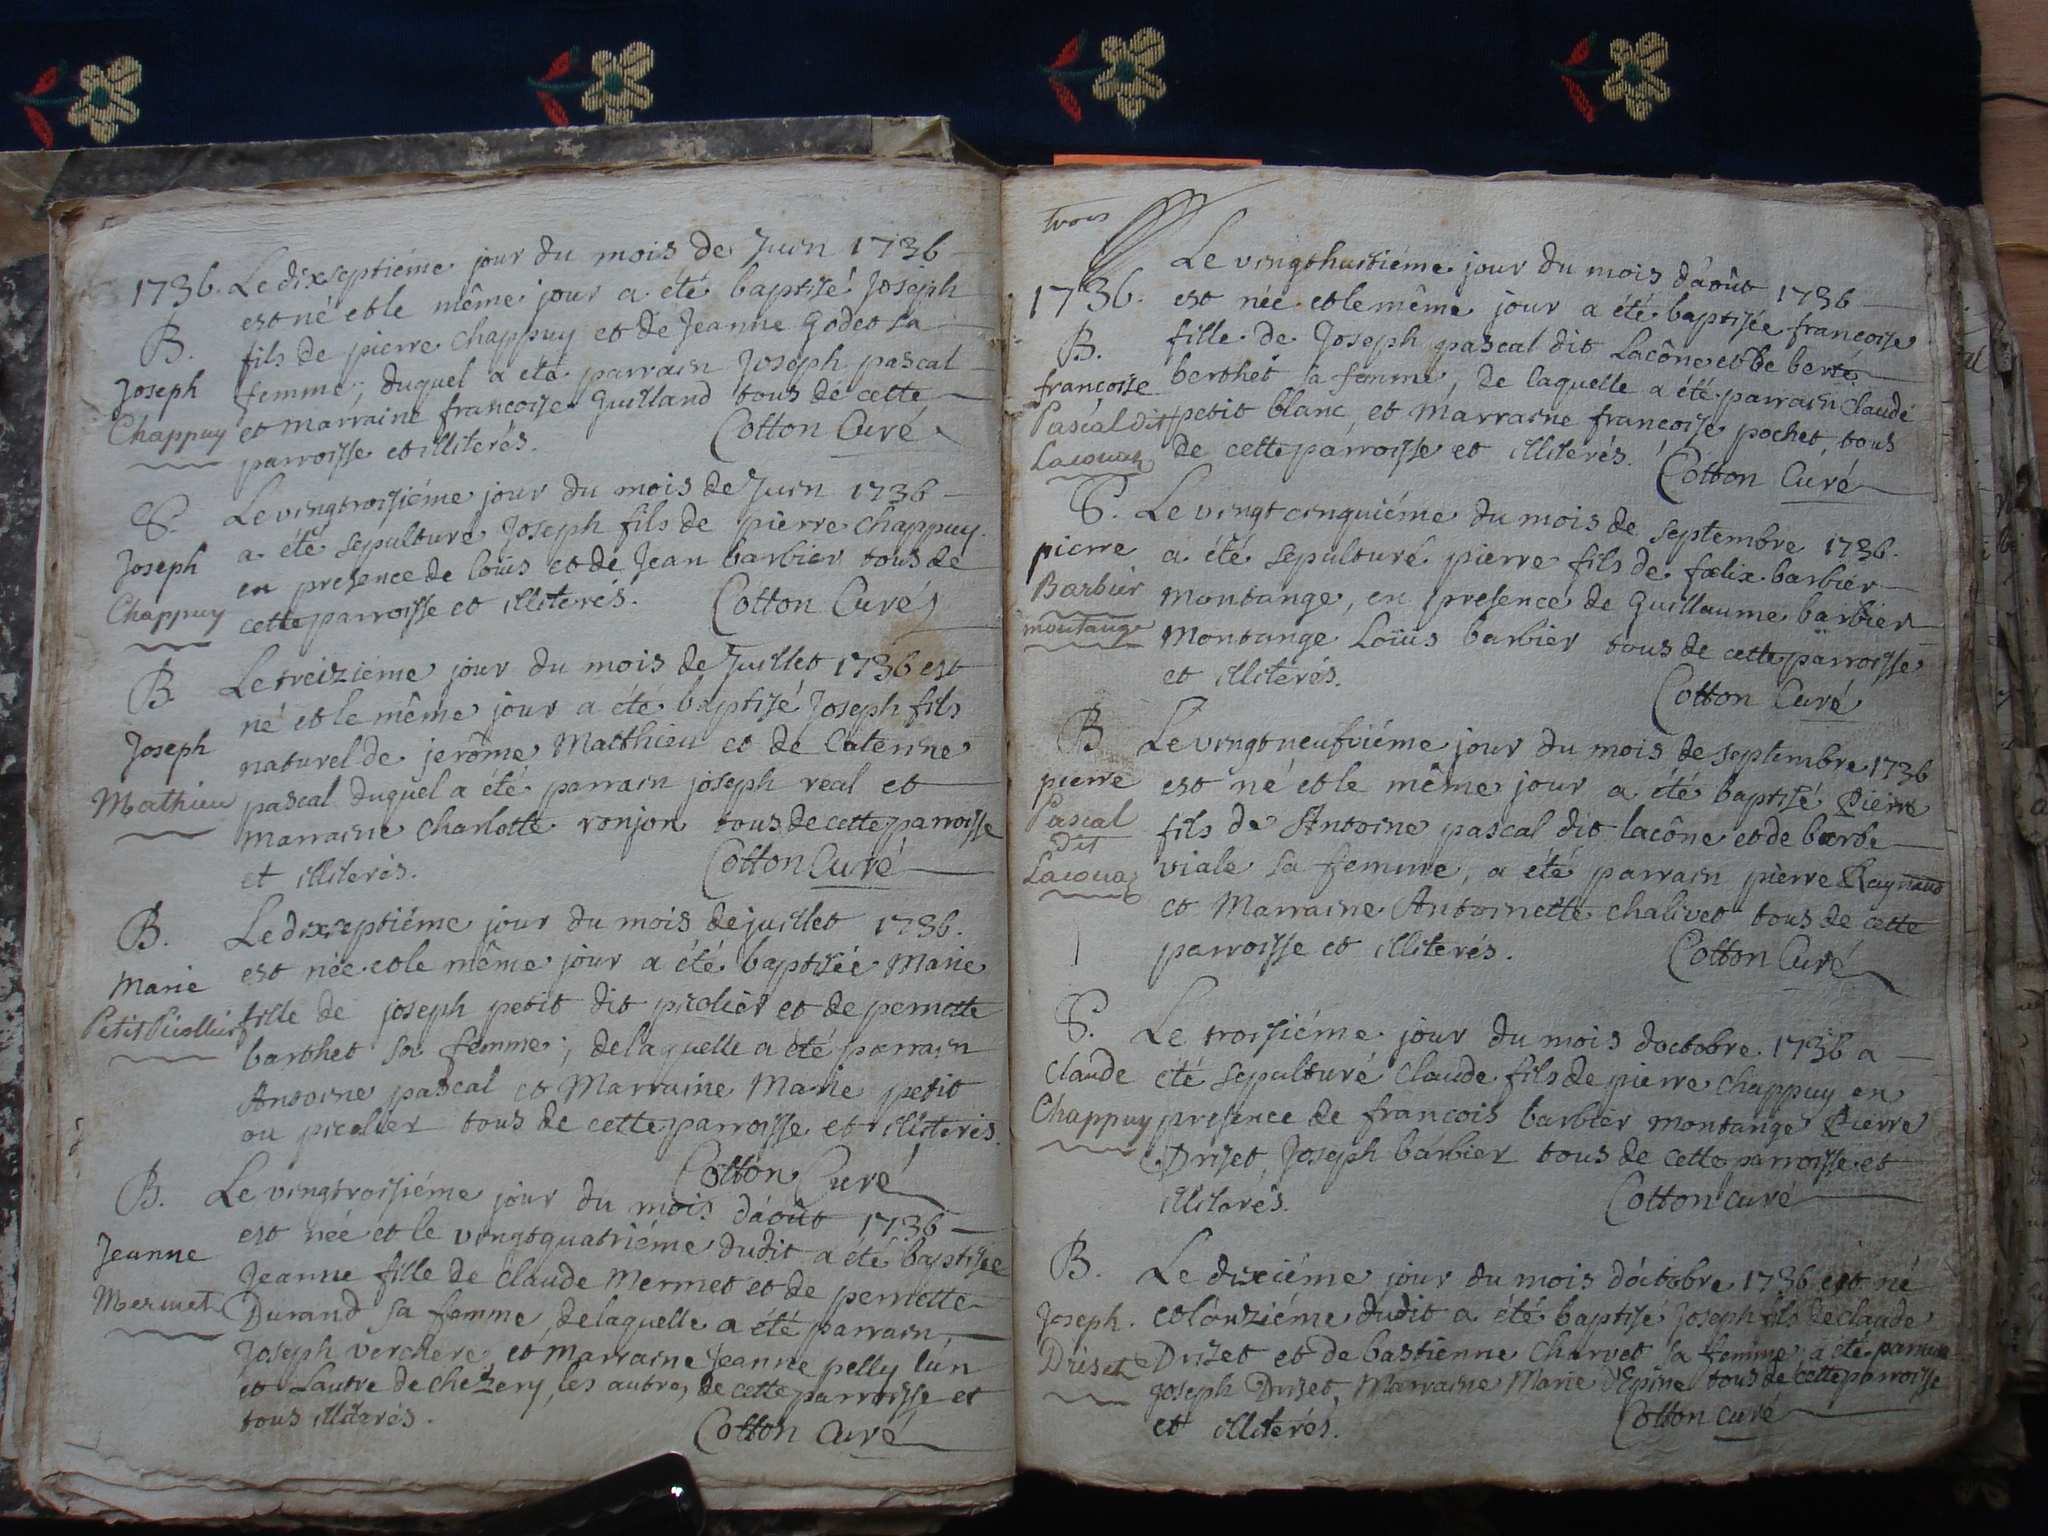 1736. Le dixseptiéme jour du mois de Juin 1736
est né et le même jour a été baptisé Joseph
B. fils de pierre Chappuy et de Jeanne Godet sa
Joseph femme, duquel a été parrain Joseph pascal
Chappuy et marraine francoise Guilland tous de cette
parroisse et illiterés. Cotton Curé
S. Le vingtroisiéme jour du mois de Juin 1736
Joseph a été sepulturé Joseph fils de pierre Chappuy
en presence de loüis et de Jean barbier tous de
Chappuy cette parroisse et illiterés. Cotton Curé
B Le treiziéme jour du mois de Juillet 1736 est
né et le même jour a été baptisé Joseph fils
Joseph naturel de jerôme Matthieu et de Caterine
Mathieu pascal duquel a été parrain joseph real et
marraine Charlotte ronjon tous de cette parroisse
et illiterés. Cotton Curé
B. Le dixseptiéme jour du mois de juillet 1736.
est née et le même jour a été baptisée Marie
Marie fille de joseph petit dit picolier et de pernette
Petit Picollier barthet sa femme, de laquelle a été parrain
Antoine pascal et Marraine Marie petit
ou picolier tous de cette parroisse et illiterés.
Cotton Curé
B. Le vingtroisiéme jour du mois d'août 1736
est née et le vingtquatriéme dudit a été baptisée
Jeanne Jeanne fille de Claude Mermet et de pernette
Mermet Durand sa femme, de laquelle a été parrain
Joseph verchere, et marraine Jeanne pelly l'un
et l'autre de chezery, les autres de cette parroisse et
tous illiterés. Cotton Curé
trois
Le vingthuitiéme jour du mois d'août 1736
1736. est née et le même jour a été baptisée francoise
B. fille de Joseph pascal dit Lacône et de berte
françoise berthet sa femme, de laquelle a été parrain Claude
Pascal dit petit blanc, et Marraine francoise pochet, tous
Laconaz de cette parroisse et illiterés. Cotton Curé
S. Le vingt cinquiéme du mois de septembre 1736.
pierre a été sepulturé pierre fils de fœlix barbier
Barbier montange, en presence de Guillaume barbier
montange Montange Loüis barbier tous de cette parroisse
et illiterés. Cotton Curé
B Le vingtneufviéme jour du mois de septembre 1736
pierre est né et le même jour a été baptisé Pierre
Pascal fils de Antoine pascal dit lacône et de barbe
dit viale sa femme, a été parrain pierre Raynaud
Laconaz et Marraine Antoinette Chalivet tous de cette
parroisse et illiterés. Cotton Curé
S. Le troisiéme jour du mois d'octobre 1736 a
Claude été sepulturé Claude fils de pierre Chappuy en
Chappuy presence de francois barbier montange Pierre
Drizet, Joseph barbier tous de cette parroisse et
illiterés. Cotton curé
B. Le dixiéme jour du mois d'octobre 1736 est né
Joseph et l'onziéme dudit a été baptisé Joseph fils de Claude
Driset Drizet et de bastienne Charvet sa femme a été parrain
joseph Drizet, Marraine Marie d'Epine tous de cette parroisse
et illiterés. Cotton curé